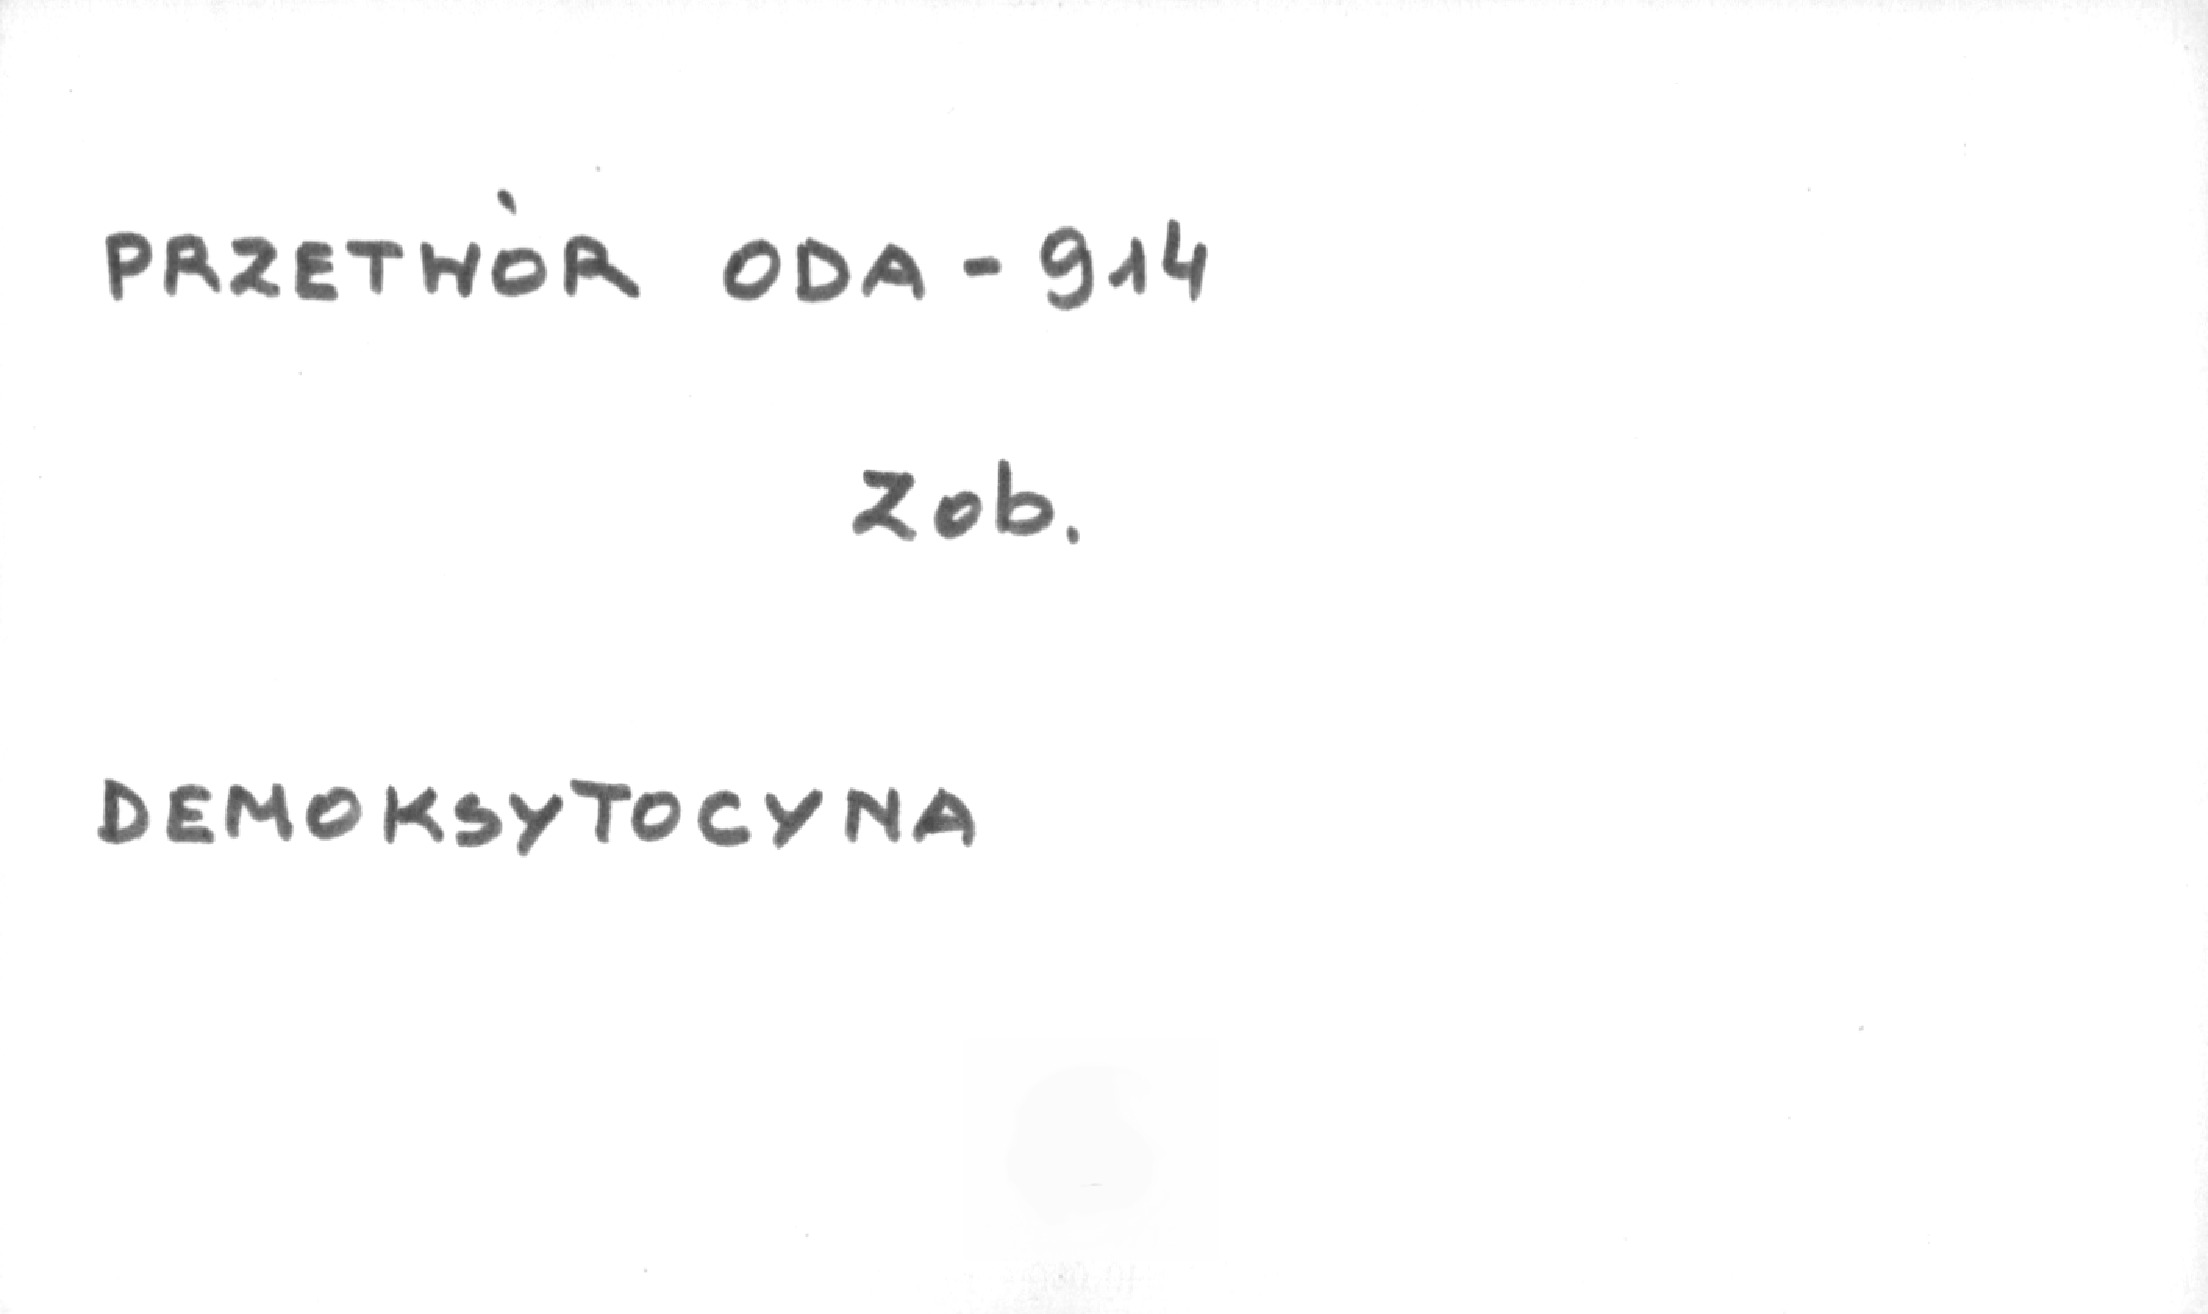 PRZETWÓR ODA-914
Zob.
DEMOKSYTOCYNA